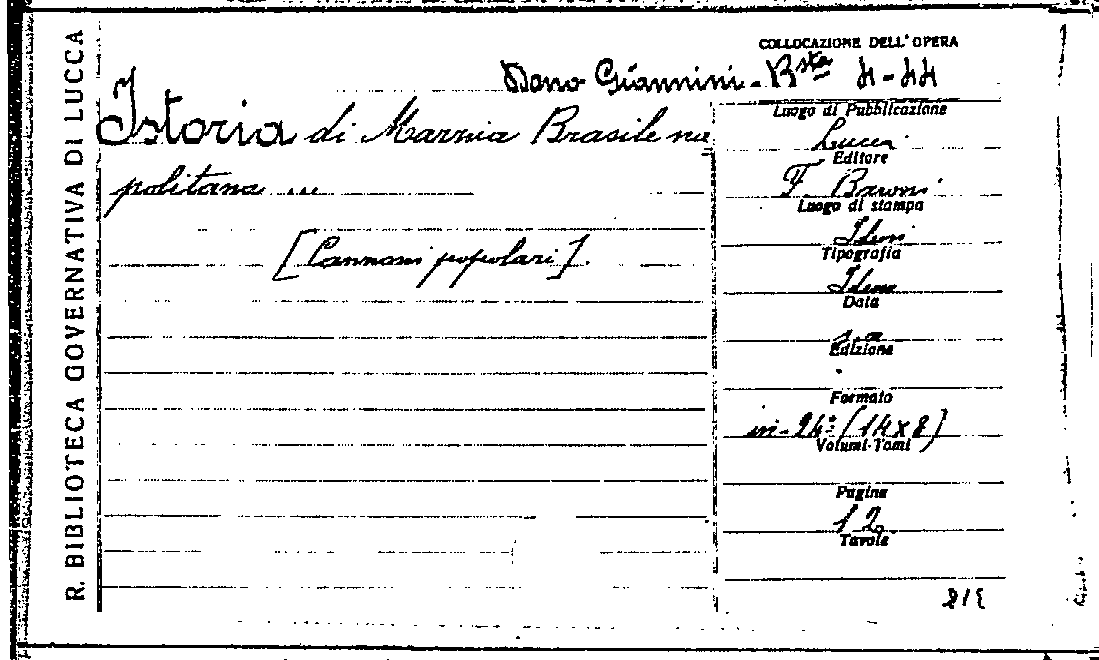 R. BIBLIOTECA GOVERNATIVA DI LUCCA
COLLOCAZIONE DELL'OPERA
Dono Giannini - Bsta 4-44
Istoria di Marzia Brasile na
politana ...
[Canzoni popolari].
Luogo di Pubblicazione
Lucca
Editore
F. Baroni
Luogo di stampa
Idem
Tipografia
Idem
Data
s. a.
Edizione
Formato
in-24º (14x8)
Volumi-Tomi
Pagine
12
Tavole